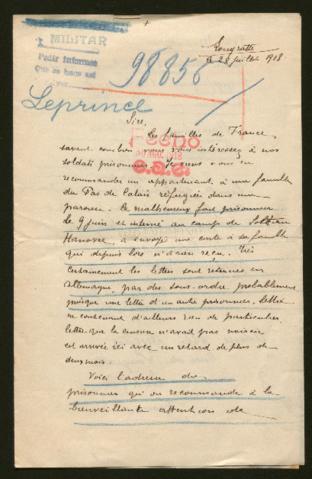 MILITAR
Pedir informes
Que se haga así
98856
le 28 juillet 1918
Leprince
Sire,
Les familles de France
savent combien vous vous intéressez à nos
soldats prisonniers. Je viens vous en
recommander un appartenant à une famille
du Pas de Calais réfugiée dans ma
paroisse. Ce malheureux fait prisonnier
le 9 juin et interné au camp de Soltau
Hanovre, a envoyé une carte à sa famille
qui depuis lors n'a rien reçu. Très
certainement les lettres sont retenues en
Allemagne, par des sous-ordre probablement
puisque une lettre d'un autre prisonnier, lettre
ne contenant d'ailleurs rien de particulier
lettre que la censure n'avait pas raison
est arrivée ici avec un retard de plus de
deux mois.
Voici l'adresse du
prisonnier que je recommande à la
bienveillante attention de